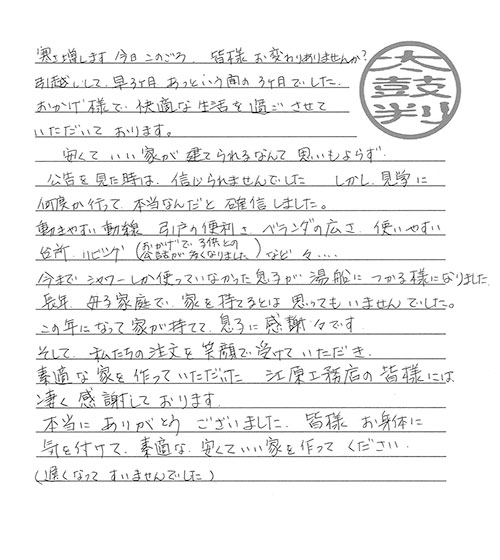 寒さ増します今日このごろ、皆様お変わりありませんか?
太鼓判
引越しして、早3ヶ月 あっという間の3ヶ月でした。
おかげ様で、快適な生活を過ごさせて
いただいております。
安くていい家が建てられるなんて思いもよらず
公告を見た時は、信じられませんでした しかし、見学に
何度か行って、本当なんだと確信しました。
動きやすい動線 引戸の便利さ、ベランダの広さ、使いやすい
台所、リビング(おかげで子供との会話が多くなりました)など々・・・・
今までシャワーしか使っていなかった息子が湯船につかる様になりました。
長年、母子家庭で、家を持てるとは思ってもいませんでした。
この年になって家が持てて、息子に感謝々です
そして、私たちの注文を笑顔で受けていただき、
素適な家を作っていただいた 江原工務店の皆様には
凄く感謝しております。
本当にありがとうございました。皆様 お身体に
気を付けて、素適な、安くていい家を作ってください。
(遅くなってすいませんでした)